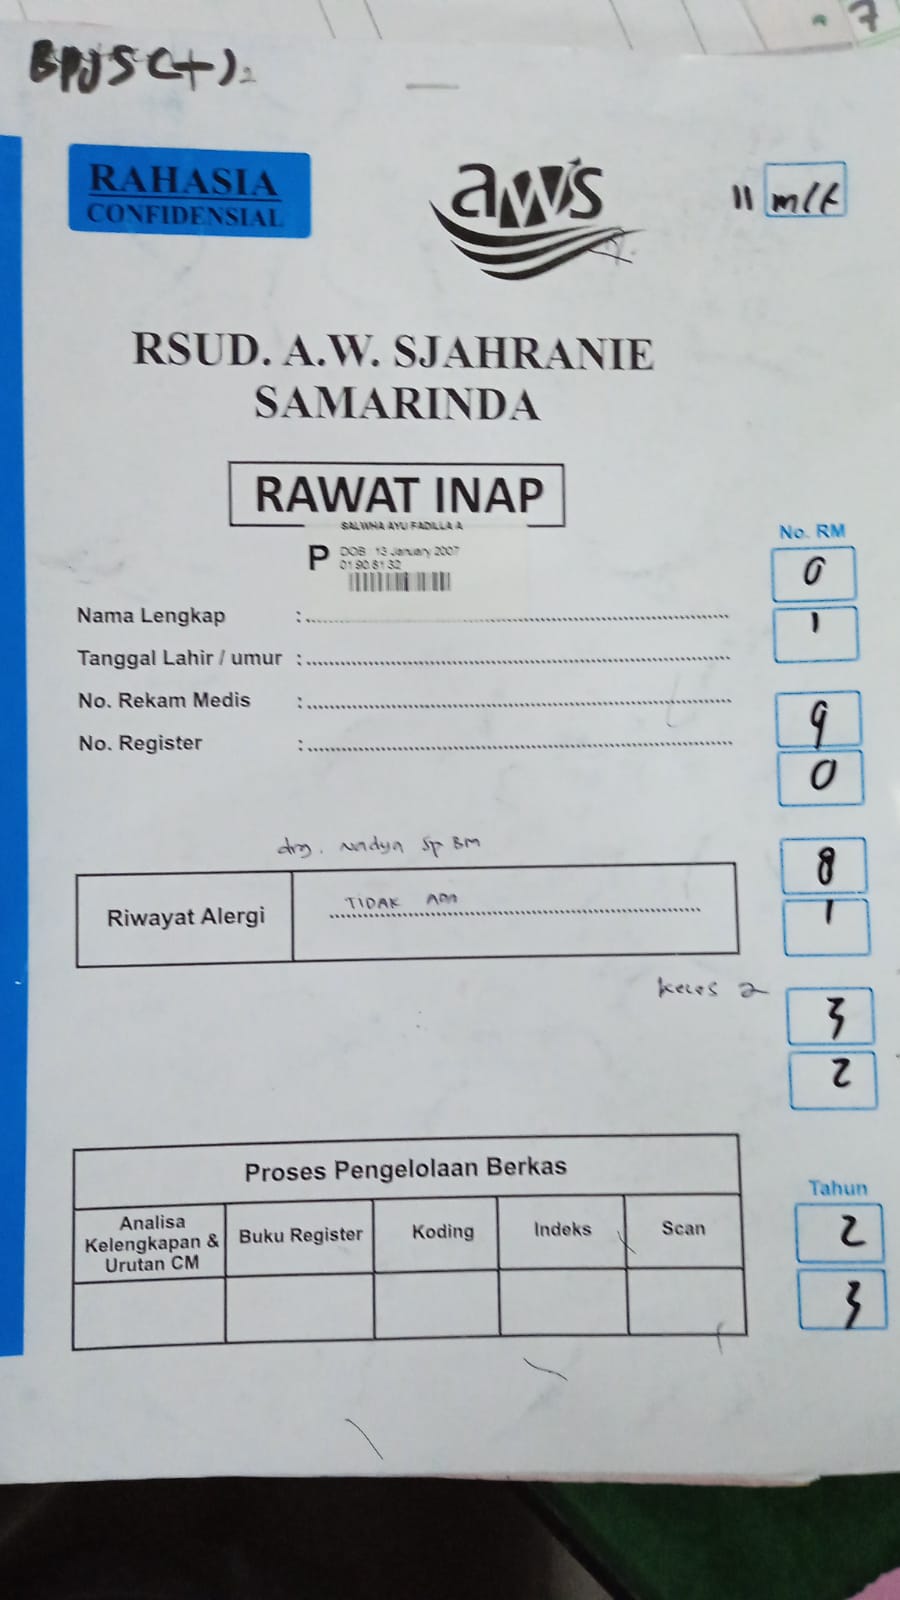 BPJS (+)
7
RAHASIA
CONFIDENSIAL
aws
RSUD. A.W. SJAHRANIE
SAMARINDA
RAWAT INAP
SALWHA AYU FADILLA A
P DOB : 13 January 2007
01.90.81.32
No. RM
0
1
9
0
8
1
3
2
Nama Lengkap :
Tanggal Lahir / umur :
No. Rekam Medis :
No. Register :
drg. Nadya Sp BM
Riwayat Alergi
TIDAK ADA
Kelas 2
Proses Pengelolaan Berkas
Analisa
Kelengkapan &
Urutan CM
Buku Register
Koding
Indeks
Scan
Tahun
2
3